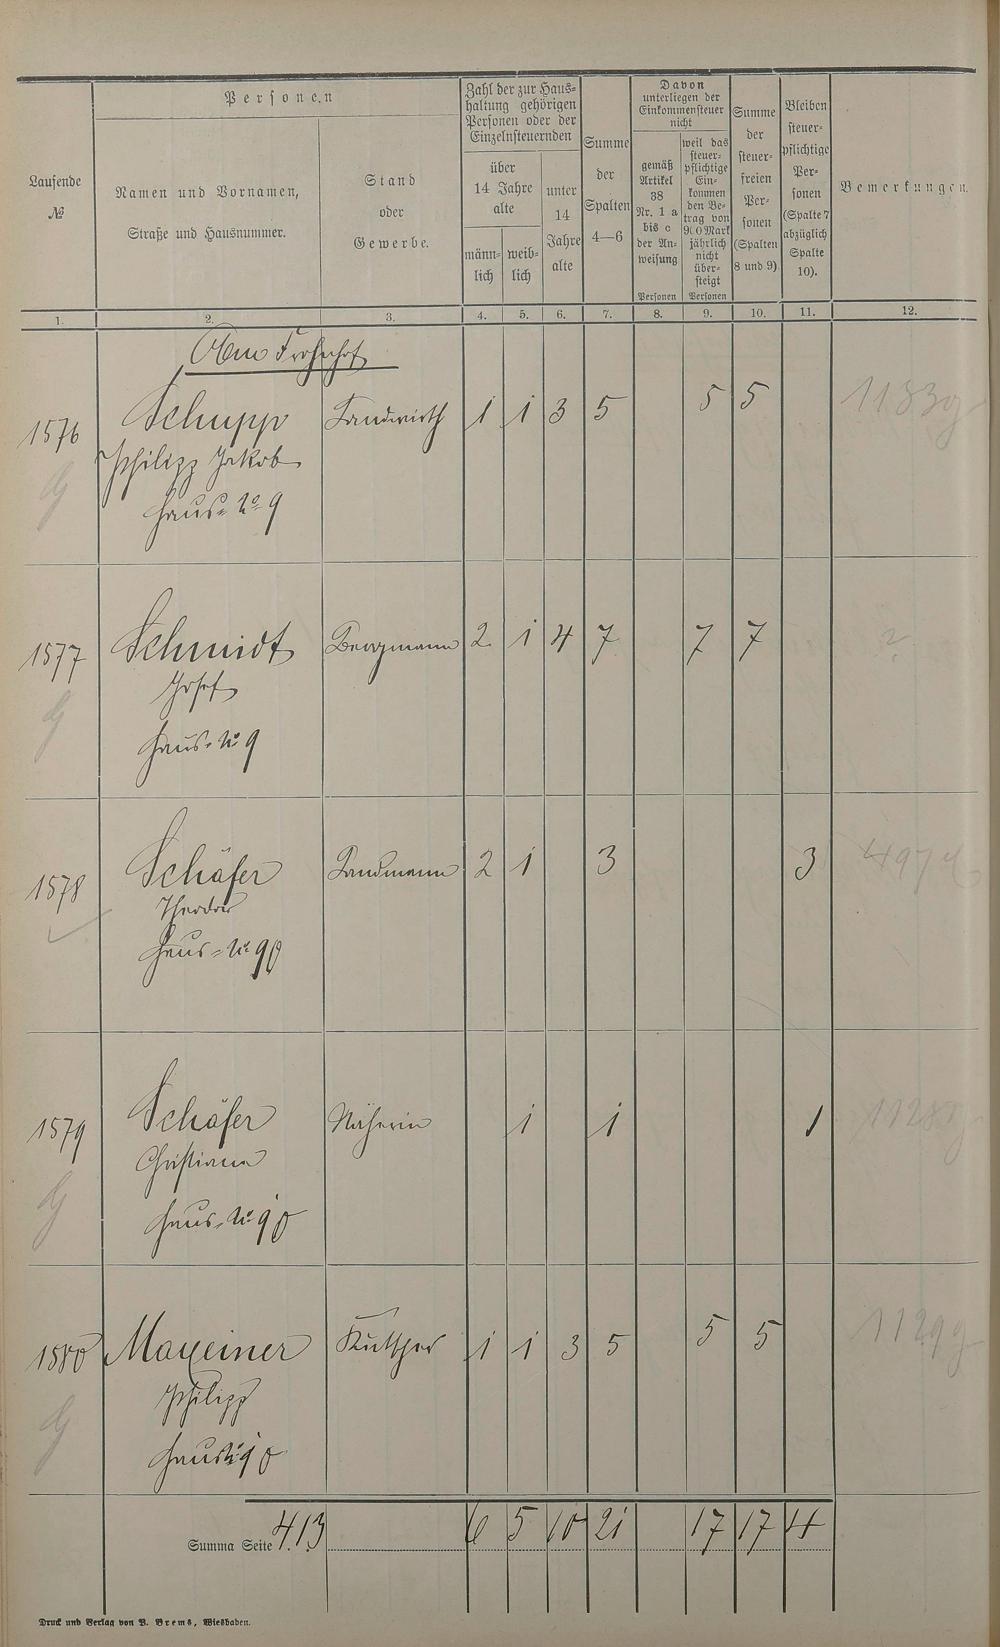 Laufende
№
Personen
Namen und Vornamen,
Straße und Hausnummer.
Stand
oder
Gewerbe.
Zahl der zur Haus=
haltung gehörigen
Personen oder der
Einzelnsteuernden
über
14 Jahre
alte
männ=
lich
weib=
lich
unter
14
Jahre
alte
Summe
der
Spalten
4—6
Davon
unterliegen der
Einkommensteuer
nicht
gemäß
Artikel
38
Nr. 1 a
bis c
der An=
weisung
Personen
weil das
steuer=
pflichtige
Ein=
kommen
den Be=
trag von
900 Mark
jährlich
nicht
über=
steigt
Personen
Summe
der
steuer=
freien
Per=
sonen
(Spalten
8 und 9).
Bleiben
steuer=
pflichtige
Per=
sonen
(Spalte 7
abzüglich
Spalte
10).
Bemerkungen.
1. 2. 3. 4. 5. 6. 7. 8. 9. 10. 11. 12.
Am Frohnhof
1576 Schupp Landwirth 1 1 3 5 5 5
Philipp Jakob
Haus=No 9
1577 Schmidt Bergmann 2 1 4 7 7 7 ?
Josef
Haus=No 9
1578 Schäfer Landmann 2 1 3 3
Theodor
Haus=No
1579 Schäfer Näherin 1 1 1
Christiane
Haus=No
1580 Maxeiner Kutscher 1 1 3 5 5 5
Philipp
Summa Seite 413 6 5 10 21 17 17 4
Druck und Verlag von P. Brems, Wiesbaden.